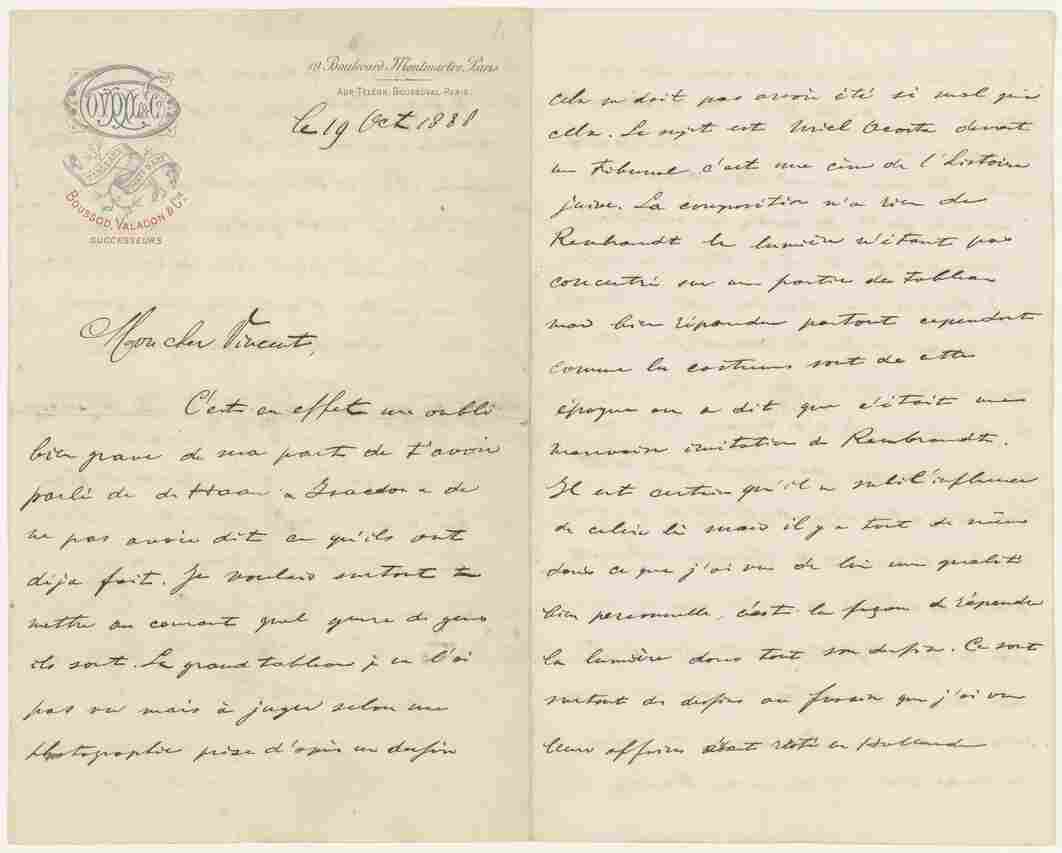 19 Boulevard Montmartre, Paris
ADR. TÉLÉGR. BOUSSOVAL-PARIS.
le 19 Oct 1888
BOUSSOD, VALADON & Cie
SUCCESSEURS
Mon cher Vincent,
C'est en effet un oubli
bien grave de ma part de t'avoir
parlé de de Haan & Isaacson & de
ne pas avoir dit ce qu'ils ont
déja fait. Je voulais surtout te
mettre au courant quel genre de gens
ils sont. Le grand tableau je ne l'ai
pas vu mais à juger selon une
photographie prise d'après un dessin
cela ne doit pas avoir été si mal que
cela. Le sujet est Uriel Acosta devant
un tribunal, c'est une scène de l'histoire
juive. La composition n'a rien de
Rembrandt la lumière n'étant pas
concentré sur une partie du tableau
mais bien répandue partout cependant
comme les costumes sont de cette
époque on a dit que c'était une
mauvaise imitation de Rembrandt.
Il est certain qu'il a subi l'influence
de celui là mais il y a tout de même
dans ce que j'ai vu de lui une qualité
bien personnelle, c'est la façon de répandre
la lumière dans tout son dessin. Ce sont
surtout des dessins au fusain que j'ai vu
leurs affaires étant resté en Hollande